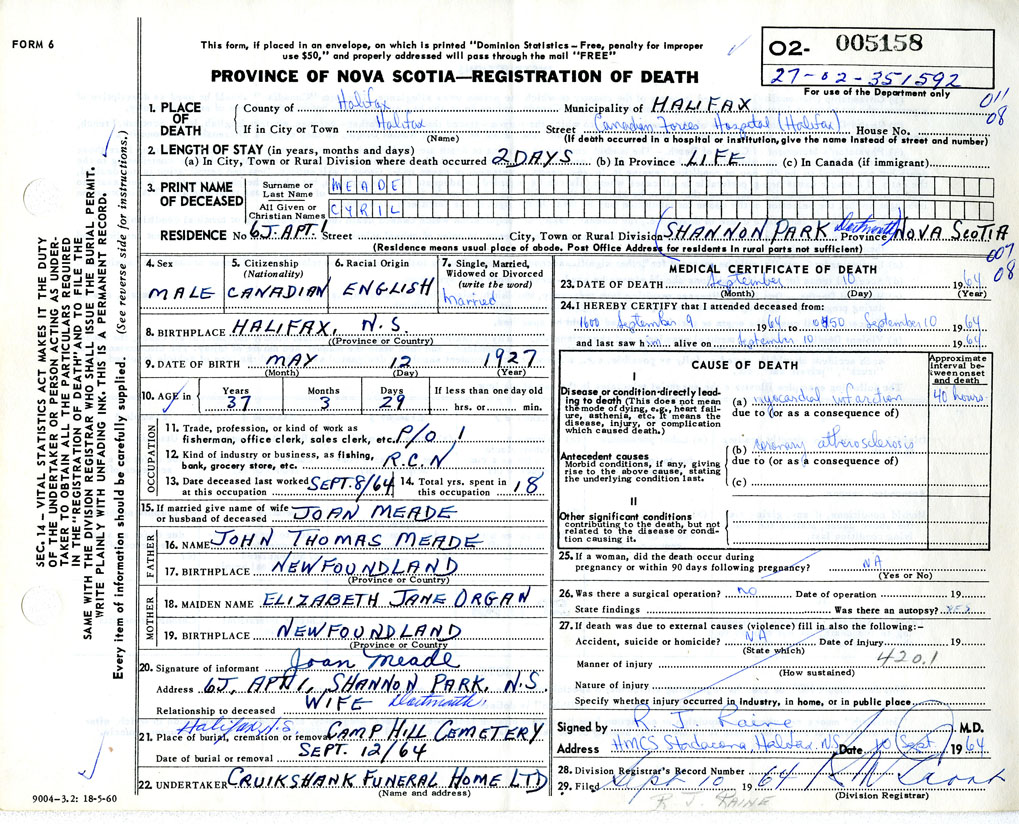 FORM 6
This form, if placed in an envelope, on which is printed "Dominion Statistics – Free, penalty for improper
use $50," and properly addressed will pass through the mail "FREE"
PROVINCE OF NOVA SCOTIA—REGISTRATION OF DEATH
O2- 005158
27-02-351592
For use of the Department only
011
08
SEC. 14 – VITAL STATISTICS ACT MAKES IT THE DUTY
OF THE UNDERTAKER OR PERSON ACTING AS UNDER-
TAKER TO OBTAIN ALL THE PARTICULARS REQUIRED
IN THE "REGISTRATION OF DEATH" AND TO FILE THE
SAME WITH THE DIVISION REGISTRAR WHO SHALL ISSUE THE BURIAL PERMIT.
WRITE PLAINLY WITH UNFADING INK. THIS IS A PERMANENT RECORD.
Every item of information should be carefully supplied. (See reverse side for instructions.)
1. PLACE OF DEATH
County of Halifax Municipality of HALIFAX
If in City or Town Halifax Street Canadian Forces Hospital (Halifax) House No.
(Name) (If death occurred in a hospital or institution, give the name instead of street and number)
2. LENGTH OF STAY (in years, months and days)
(a) In City, Town or Rural Division where death occurred 2 DAYS (b) In Province LIFE (c) In Canada (if immigrant)
3. PRINT NAME OF DECEASED
Surname or Last Name MEADE
All Given or Christian Names CYRIL
RESIDENCE No 6J. APT. 1 Street City, Town or Rural Division (SHANNON PARK Dartmouth) Province NOVA SCOTIA
(Residence means usual place of abode. Post Office Address for residents in rural parts not sufficient)
007
08
4. Sex MALE
5. Citizenship (Nationality) CANADIAN
6. Racial Origin ENGLISH
7. Single, Married, Widowed or Divorced (write the word) Married
8. BIRTHPLACE HALIFAX, N.S.
((Province or Country)
9. DATE OF BIRTH MAY 12 1927
(Month) (Day) (Year)
10. AGE in Years 37 Months 3 Days 29 If less than one day old hrs. or min.
OCCUPATION
11. Trade, profession, or kind of work as
fisherman, office clerk, sales clerk, etc. P/O 1
12. Kind of industry or business, as fishing,
bank, grocery store, etc. R.C.N
13. Date deceased last worked at this occupation SEPT. 8/64 14. Total yrs. spent in this occupation 18
15. If married give name of wife or husband of deceased JOAN MEADE
FATHER
16. NAME JOHN THOMAS MEADE
17. BIRTHPLACE NEWFOUNDLAND
(Province or Country)
MOTHER
18. MAIDEN NAME ELIZABETH JANE ORGAN
19. BIRTHPLACE NEWFOUNDLAND
(Province or Country
20. Signature of informant Joan Meade
Address 6J, APT 1, SHANNON PARK, N.S.
Relationship to deceased WIFE Dartmouth,
Halifax, N.S.
21. Place of burial, cremation or removal CAMP HILL CEMETERY
Date of burial or removal SEPT. 12/64
22. UNDERTAKER CRUIKSHANK FUNERAL HOME LTD
(Name and address)
9004–3.2: 18-5-60
MEDICAL CERTIFICATE OF DEATH
23. DATE OF DEATH September 10 1964
(Month) (Day) (Year)
24. I HEREBY CERTIFY that I attended deceased from:
1600 September 9 1964 to 0450 September 10 1964
and last saw him alive on September 10 1964
CAUSE OF DEATH
Approximate Interval between onset and death
I
Disease or condition directly leading to death (This does not mean the mode of dying, e.g., heart failure, asthenia, etc. It means the disease, injury, or complication which caused death.)
(a) myocardial infarction 40 hours
due to (or as a consequence of)
Antecedent causes
Morbid conditions, if any, giving rise to the above cause, stating the underlying condition last.
(b) coronary atherosclerosis
due to (or as a consequence of)
(c)
II
Other significant conditions
contributing to the death, but not related to the disease or condition causing it.
25. If a woman, did the death occur during
pregnancy or within 90 days following pregnancy? NA
(Yes or No)
26. Was there a surgical operation? no Date of operation 19
State findings Was there an autopsy? yes
27. If death was due to external causes (violence) fill in also the following:–
Accident, suicide or homicide? NA Date of injury 19
(State which)
420.1
Manner of injury
(How sustained)
Nature of injury
Specify whether injury occurred in industry, in home, or in public place
Signed by R. J. Raine M.D.
Address HMCS Stadacona, Halifax, NS Date 10 Sept 1964
28. Division Registrar's Record Number
29. Filed Sept 10 1964
(Division Registrar)
R. J. RAINE